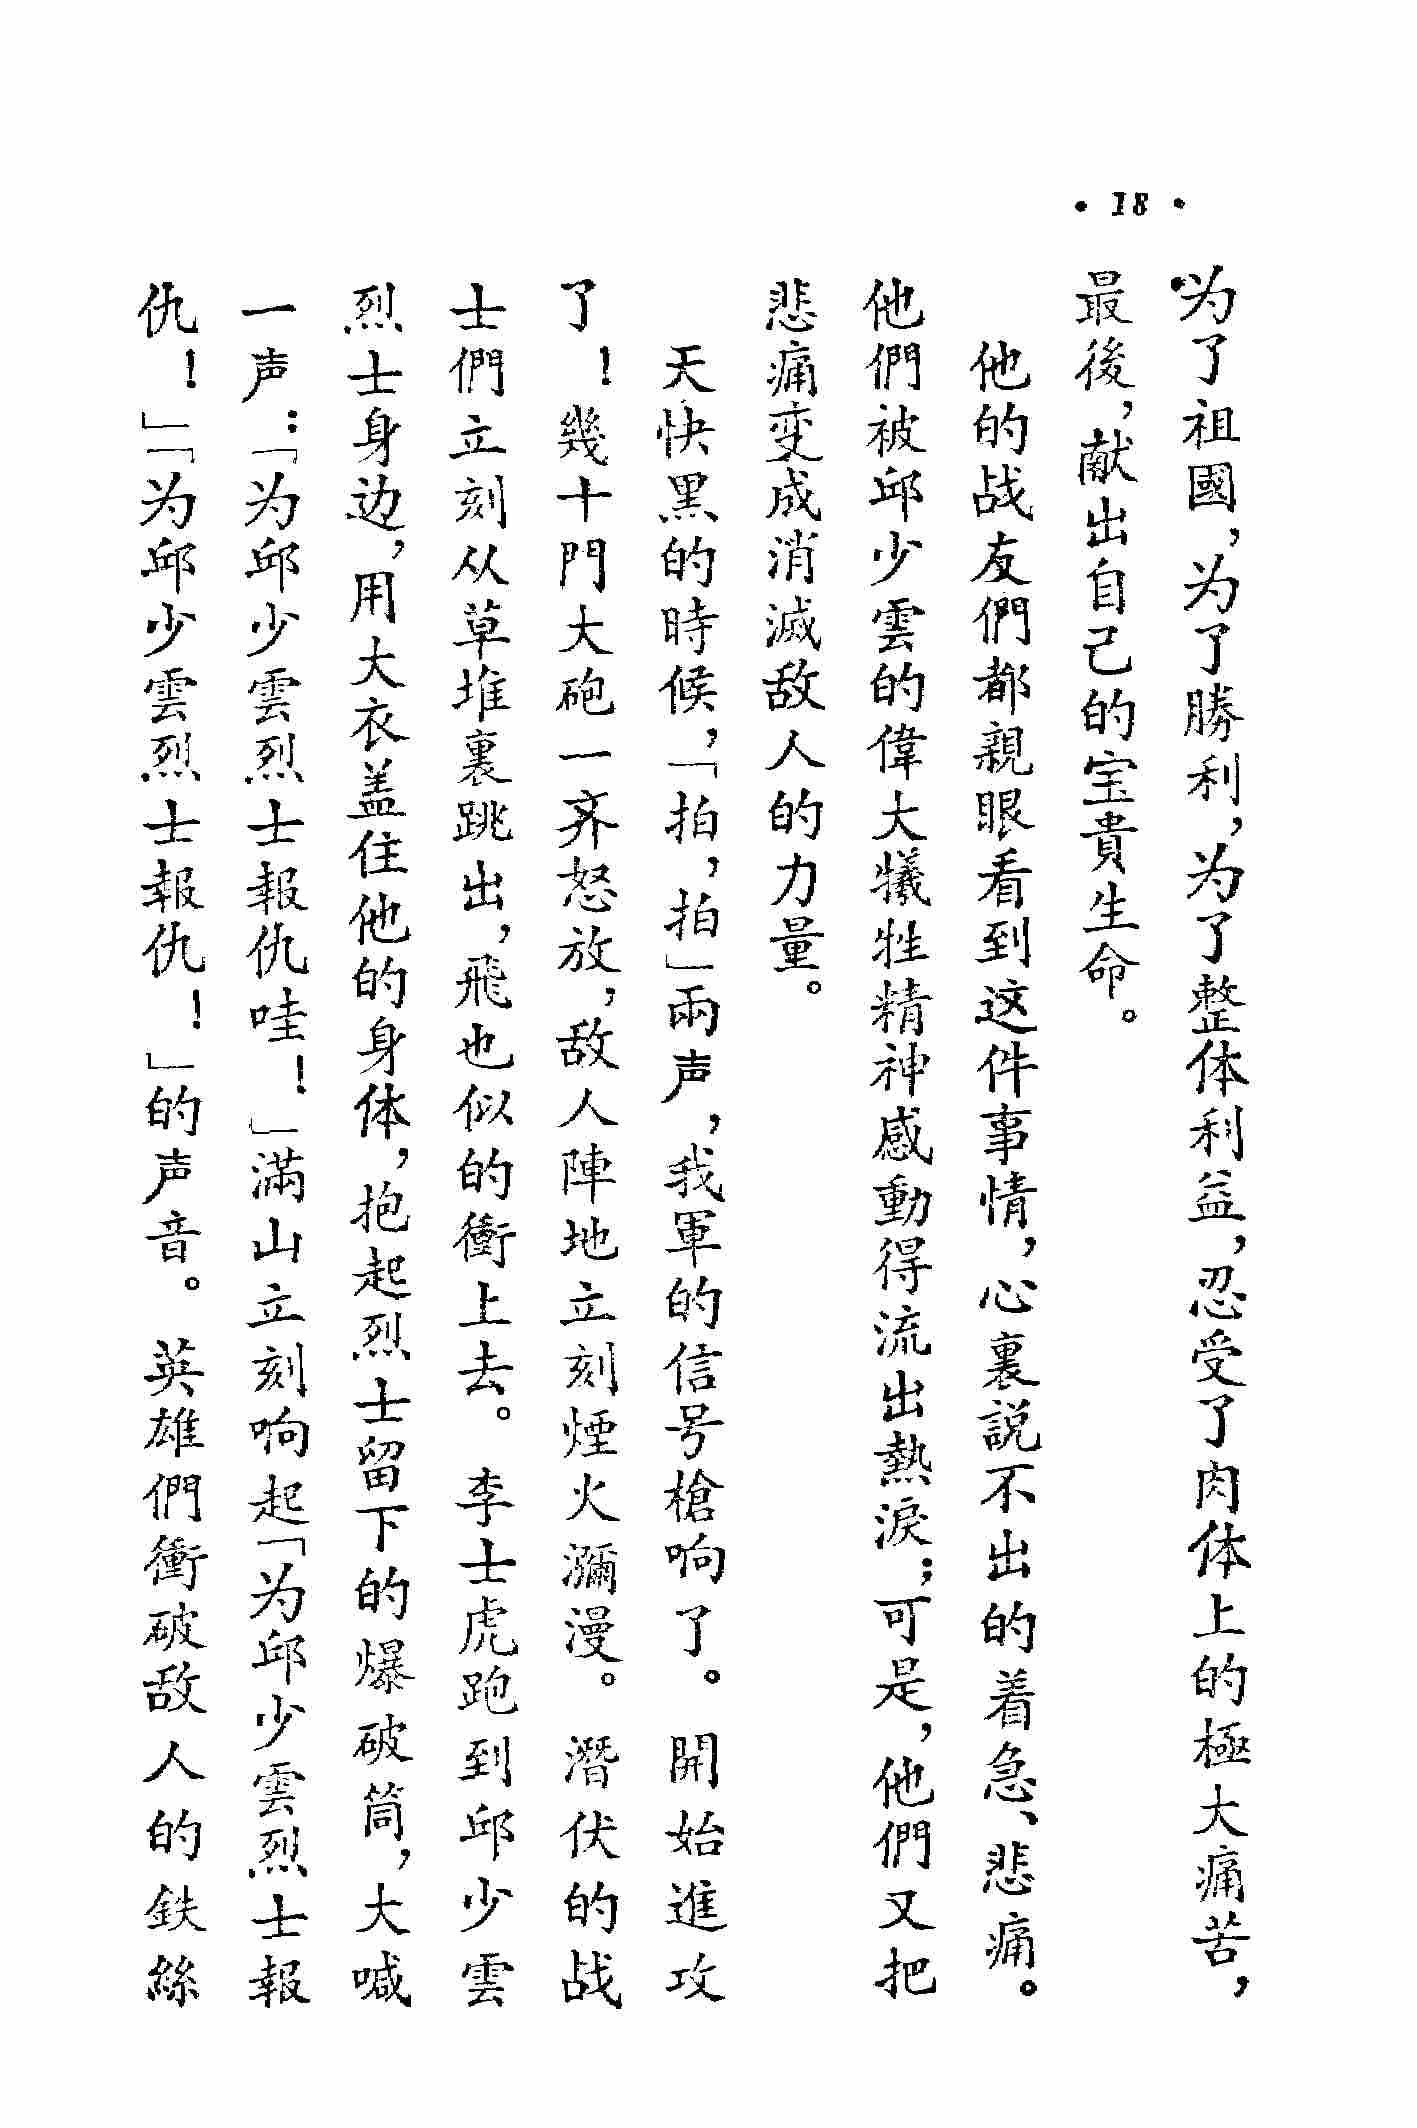 ·18·
为了祖國，为了勝利，为了整体利益，忍受了肉体上的極大痛苦，
最後，献出自己的宝貴生命。
他的战友們都親眼看到这件事情，心裏說不出的着急、悲痛。
他們被邱少雲的偉大犧牲精神感動得流出熱淚；可是，他們又把
悲痛变成消滅敌人的力量。
天快黑的時候，「拍，拍」兩声，我軍的信号槍响了。開始進攻
了！幾十門大砲一齐怒放，敌人陣地立刻煙火瀰漫。潛伏的战
士們立刻从草堆裏跳出，飛也似的衝上去。李士虎跑到邱少雲
烈士身边，用大衣盖住他的身体，抱起烈士留下的爆破筒，大喊
一声：「为邱少雲烈士報仇哇！」滿山立刻响起「为邱少雲烈士報
仇！」「为邱少雲烈士報仇！」的声音。英雄們衝破敌人的鉄絲